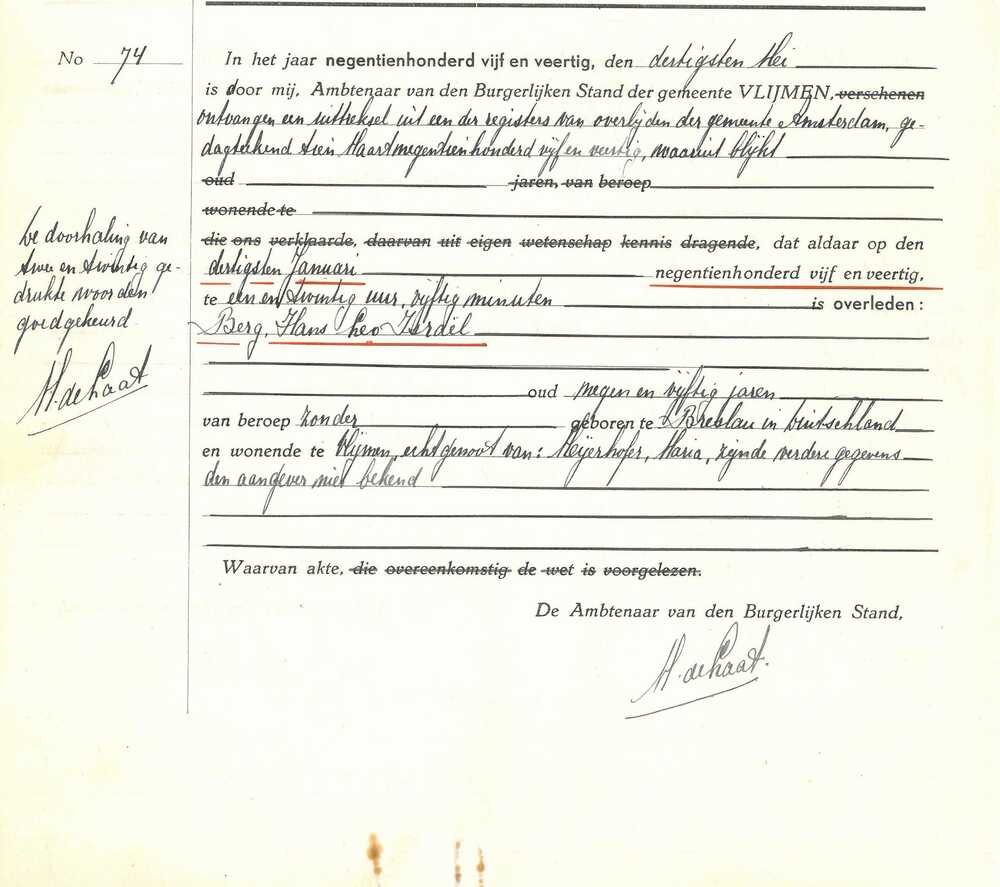 No 74
In het jaar negentienhonderd vijf en veertig, den dertigsten Mei
is door mij, Ambtenaar van den Burgerlijken Stand der gemeente VLIJMEN, verschenen
ontvangen een uittreksel uit een der registers van overlijden der gemeente Amsterdam, ge-
dagteekend tien Maart negentienhonderd vijf en veertig, waaruit blijkt
oud jaren, van beroep
wonende te
die ons verklaarde, daarvan uit eigen wetenschap kennis dragende, dat aldaar op den
dertigsten Januari negentienhonderd vijf en veertig,
te een en twintig uur, vijftig minuten is overleden:
Berg, Hans Leo Israël
oud negen en vijftig jaren
van beroep zonder geboren te Breslau in Duitschland
en wonende te Vlijmen, echtgenoot van: Meijerhofer, Maria, zijnde verdere gegevens
den aangever niet bekend
Waarvan akte, die overeenkomstig de wet is voorgelezen.
De Ambtenaar van den Burgerlijken Stand,
M. de Laat.
De doorhaling van
twee en twintig ge-
drukte woorden
goedgekeurd
M. de Laat